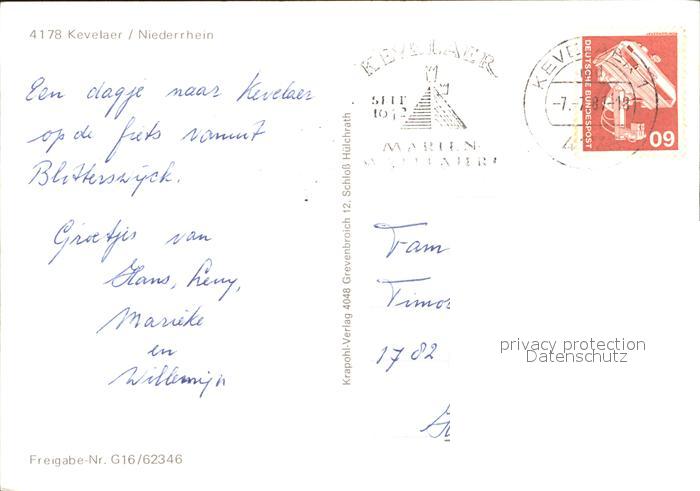 4178 Kevelaer / Niederrhein
Een dagje naar Kevelaer
op de fiets vanuit
Blitterswijck.
Groetjes van
Hans, Leny,
Marieke
en
Willemijn
Freigabe-Nr. G16/62346
Krapohl-Verlag 4048 Grevenbroich 12, Schloß Hülchrath
KEVELAER
SEIT
MARIEN-
WALLFAHRT
KEVELAER 1
DEUTSCHE BUNDESPOST
60
Fam
1782
privacy protection
Datenschutz